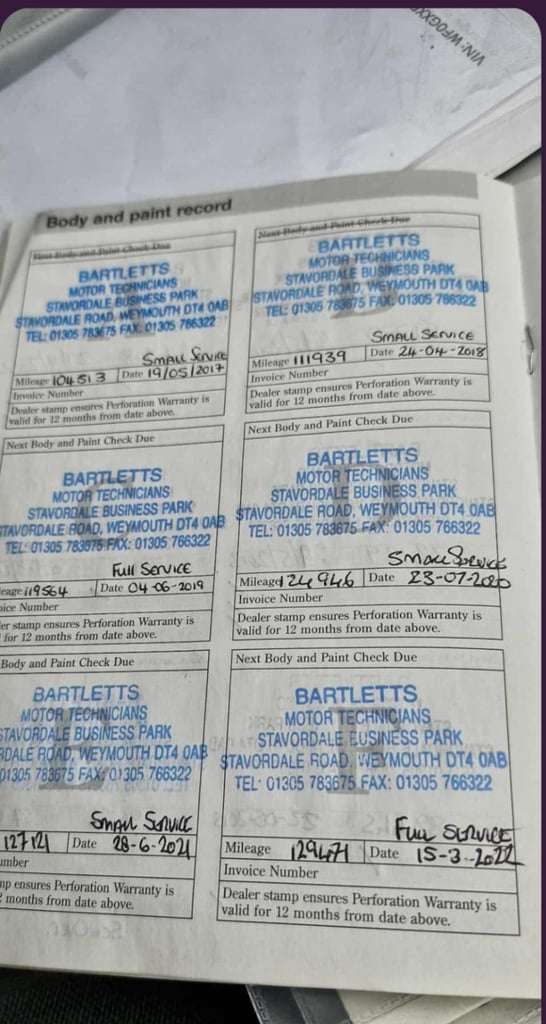 VIN: WF0GXX
Body and paint record
Next Body and Paint Check Due
BARTLETTS
MOTOR TECHNICIANS
STAVORDALE BUSINESS PARK
STAVORDALE ROAD, WEYMOUTH DT4 0AB
TEL: 01305 783675 FAX: 01305 766322
SMALL SERVICE
Mileage 104513 Date 19/05/2017
Invoice Number
Dealer stamp ensures Perforation Warranty is
valid for 12 months from date above.
Next Body and Paint Check Due
BARTLETTS
MOTOR TECHNICIANS
STAVORDALE BUSINESS PARK
STAVORDALE ROAD, WEYMOUTH DT4 0AB
TEL: 01305 783675 FAX: 01305 766322
SMALL SERVICE
Mileage 111939 Date 24-04-2018
Invoice Number
Dealer stamp ensures Perforation Warranty is
valid for 12 months from date above.
Next Body and Paint Check Due
C
BARTLETTS
MOTOR TECHNICIANS
STAVORDALE BUSINESS PARK
STAVORDALE ROAD, WEYMOUTH DT4 0AB
TEL: 01305 783675 FAX: 01305 766322
Full SERVICE
eage 119564 Date 04-06-2019
oice Number
er stamp ensures Perforation Warranty is
for 12 months from date above.
Next Body and Paint Check Due
D
BARTLETTS
MOTOR TECHNICIANS
STAVORDALE BUSINESS PARK
STAVORDALE ROAD, WEYMOUTH DT4 0AB
TEL: 01305 783675 FAX: 01305 766322
SMALL SERVICE
Mileage 124946 Date 23-07-2020
Invoice Number
Dealer stamp ensures Perforation Warranty is
valid for 12 months from date above.
Body and Paint Check Due
E
BARTLETTS
MOTOR TECHNICIANS
STAVORDALE BUSINESS PARK
RDALE ROAD, WEYMOUTH DT4 0AB
01305 783675 FAX: 01305 766322
SMALL SERVICE
127121 Date 28-6-2021
umber
mp ensures Perforation Warranty is
2 months from date above.
Next Body and Paint Check Due
F
BARTLETTS
MOTOR TECHNICIANS
STAVORDALE BUSINESS PARK
STAVORDALE ROAD, WEYMOUTH DT4 0AB
TEL: 01305 783675 FAX: 01305 766322
Full SERVICE
Mileage 129471 Date 15-3-2022
Invoice Number
Dealer stamp ensures Perforation Warranty is
valid for 12 months from date above.